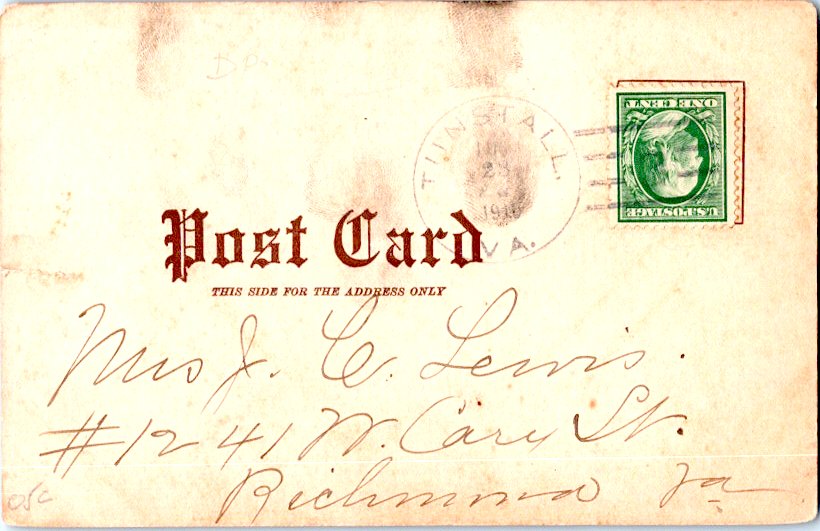 D.B.
TUNSTALL.
JUN
23
1910
VA.
ONE CENT
U.S. POSTAGE
Post Card
THIS SIDE FOR THE ADDRESS ONLY
Mrs J. C. Lewis.
#1241 W. Cary St.
Richmond Va